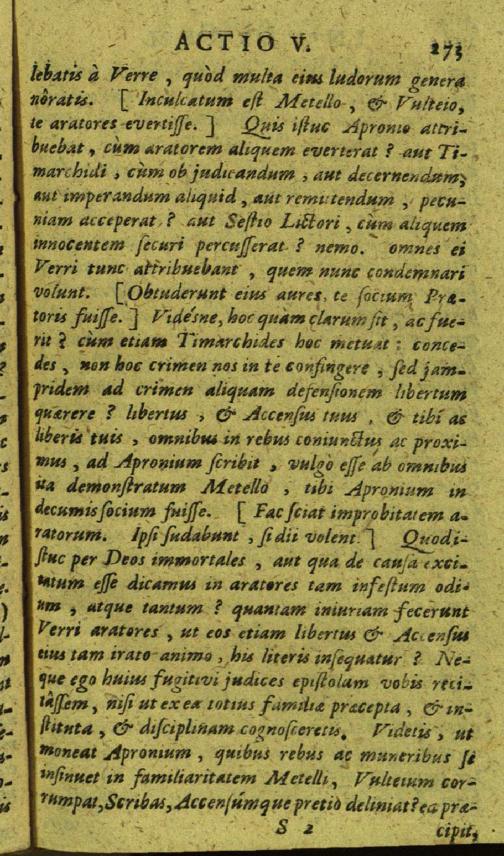 ACTIO V. 273
lebatis à Verre, quòd multa eius ludorum genera
nôratis. [Inculcatum est Metello, & Vulteio,
te aratores evertisse.] Quis istuc Apronio attri-
buebat, cùm aratorem aliquem everterat? aut Ti-
marchidi, cùm ob judicandum, aut decernendum,
aut imperandum aliquid, aut remittendum, pecu-
niam acceperat? aut Sestio Lictori, cùm aliquem
innocentem securi percusserat? nemo. omnes ei
Verri tunc attribuebant, quem nunc condemnari
volunt. [Obtuderunt eius aures, te socium Præ-
toris fuisse.] Vidésne, hoc quàm clarum sit, ac fue-
rit? cùm etiam Timarchides hoc metuat: conce-
des, non hoc crimen nos in te confingere, sed jam-
pridem ad crimen aliquam defensionem libertum
quærere? libertus, & Accensus tuus, & tibi ac
liberis tuis, omnibus in rebus coniunctus ac proxi-
mus, ad Apronium scribit, vulgò esse ab omnibus
ita demonstratum Metello, tibi Apronium in
decumis socium fuisse. [Fac sciat improbitatem a-
ratorum. Ipsi sudabunt, si dii volent.] Quodi-
stuc per Deos immortales, aut qua de causa exci-
tatum esse dicamus in aratores tam infestum odi-
um, atque tantum? quantam iniuriam fecerunt
Verri aratores, ut eos etiam libertus & Accensus
eius tam irato animo, his literis insequatur? Ne-
que ego huius fugitivi judices epistolam vobis reci-
tâssem, nisi ut ex ea totius familiæ præcepta, & in-
stituta, & disciplinam cognosceretis. Videtis, ut
moneat Apronium, quibus rebus ac muneribus se
insinuet in familiaritatem Metelli, Vulteium cor-
rumpat, Scribas, Accensúmque pretio deliniat? ea præ-
S 2 cipit,